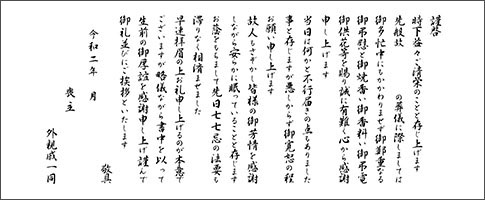 謹啓
時下益々ご清栄のことと存じ上げます
先般故　　　　の葬儀に際しましては
御多忙中にもかかわりませず御鄭重なる
御弔慰と御焼香い御香料い御弔電
御供花等を賜り誠に有難く心から感謝
申し上げます
当日は何かと不行届きの点もありました
事と存じますが悪しからず御寛恕の程
お願い申し上げます
故人もさぞかし皆様の御芳情を感謝
しながら安らかに眠っていることと存じます
お陰をもちまして先日七七忌の法要も
滞りなく相済ませました
早速拝眉の上お礼申し上げるのが本意で
ございますが略儀ながら書中を以って
生前の御厚誼を感謝申し上げ謹んで
御礼並びにご挨拶といたします
敬具
令和二年　月
喪主
外親戚一同